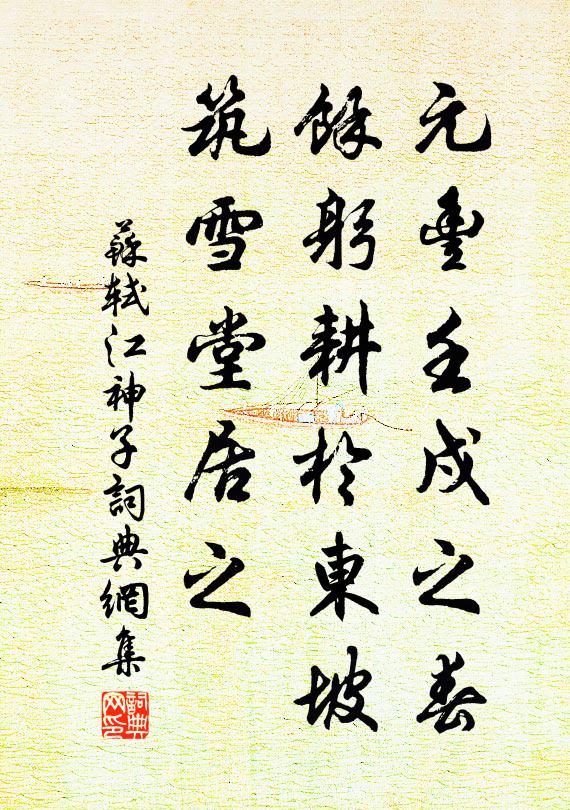 元豐壬戌之春
餘躬耕於東坡
筑雪堂居之
蘇軾江神子詞典網集
詞典网印